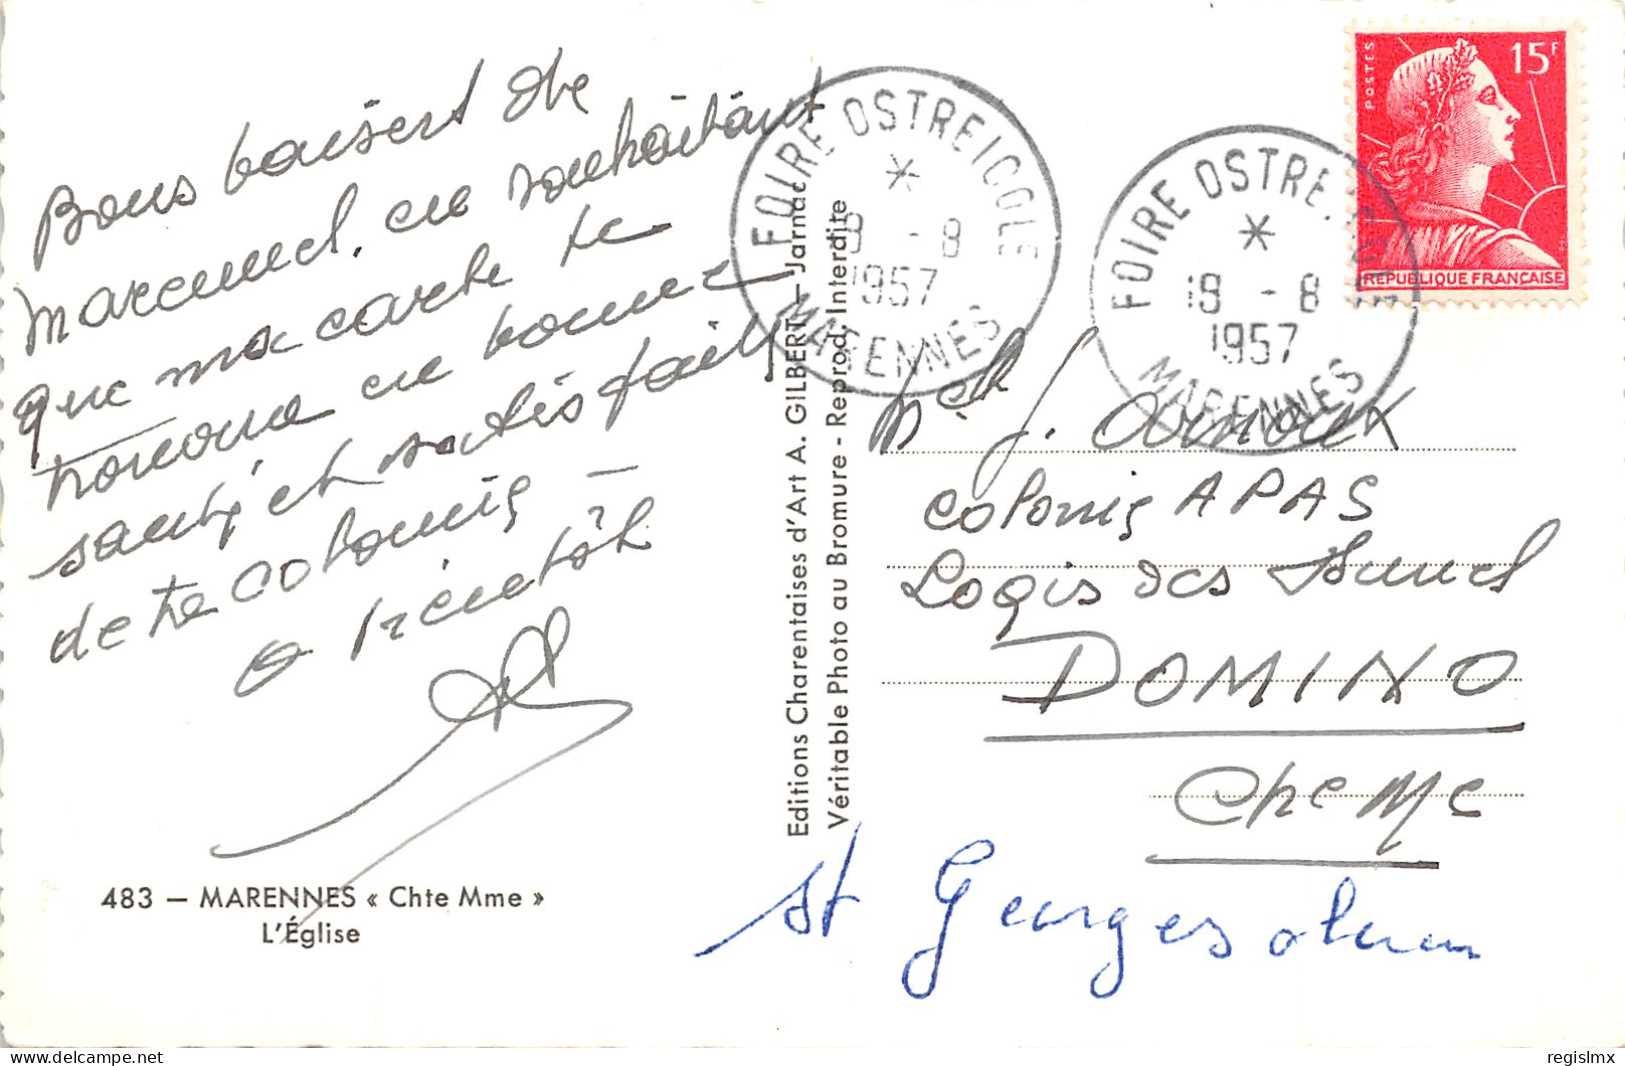 Bons baisers de
Marennes, en souhaitant
que ma carte te
trouve en bonne
santé, et satisfait
de ta colonie —
a bientôt
483 — MARENNES « Chte Mme »
L'Église
Editions Charentaises d'Art A. GILBERT — Jarnac
Véritable Photo au Bromure - Reprod. Interdite
FOIRE OSTREICOLE
19 -8
1957
MARENNES
FOIRE OSTREICOLE
19 -8
1957
MARENNES
POSTES
15F
REPUBLIQUE FRANÇAISE
J. Arnoux
Colonie APAS
Logis des
DOMINO
Chte Mme
St Georges oleron
delcampe.net
regislmx